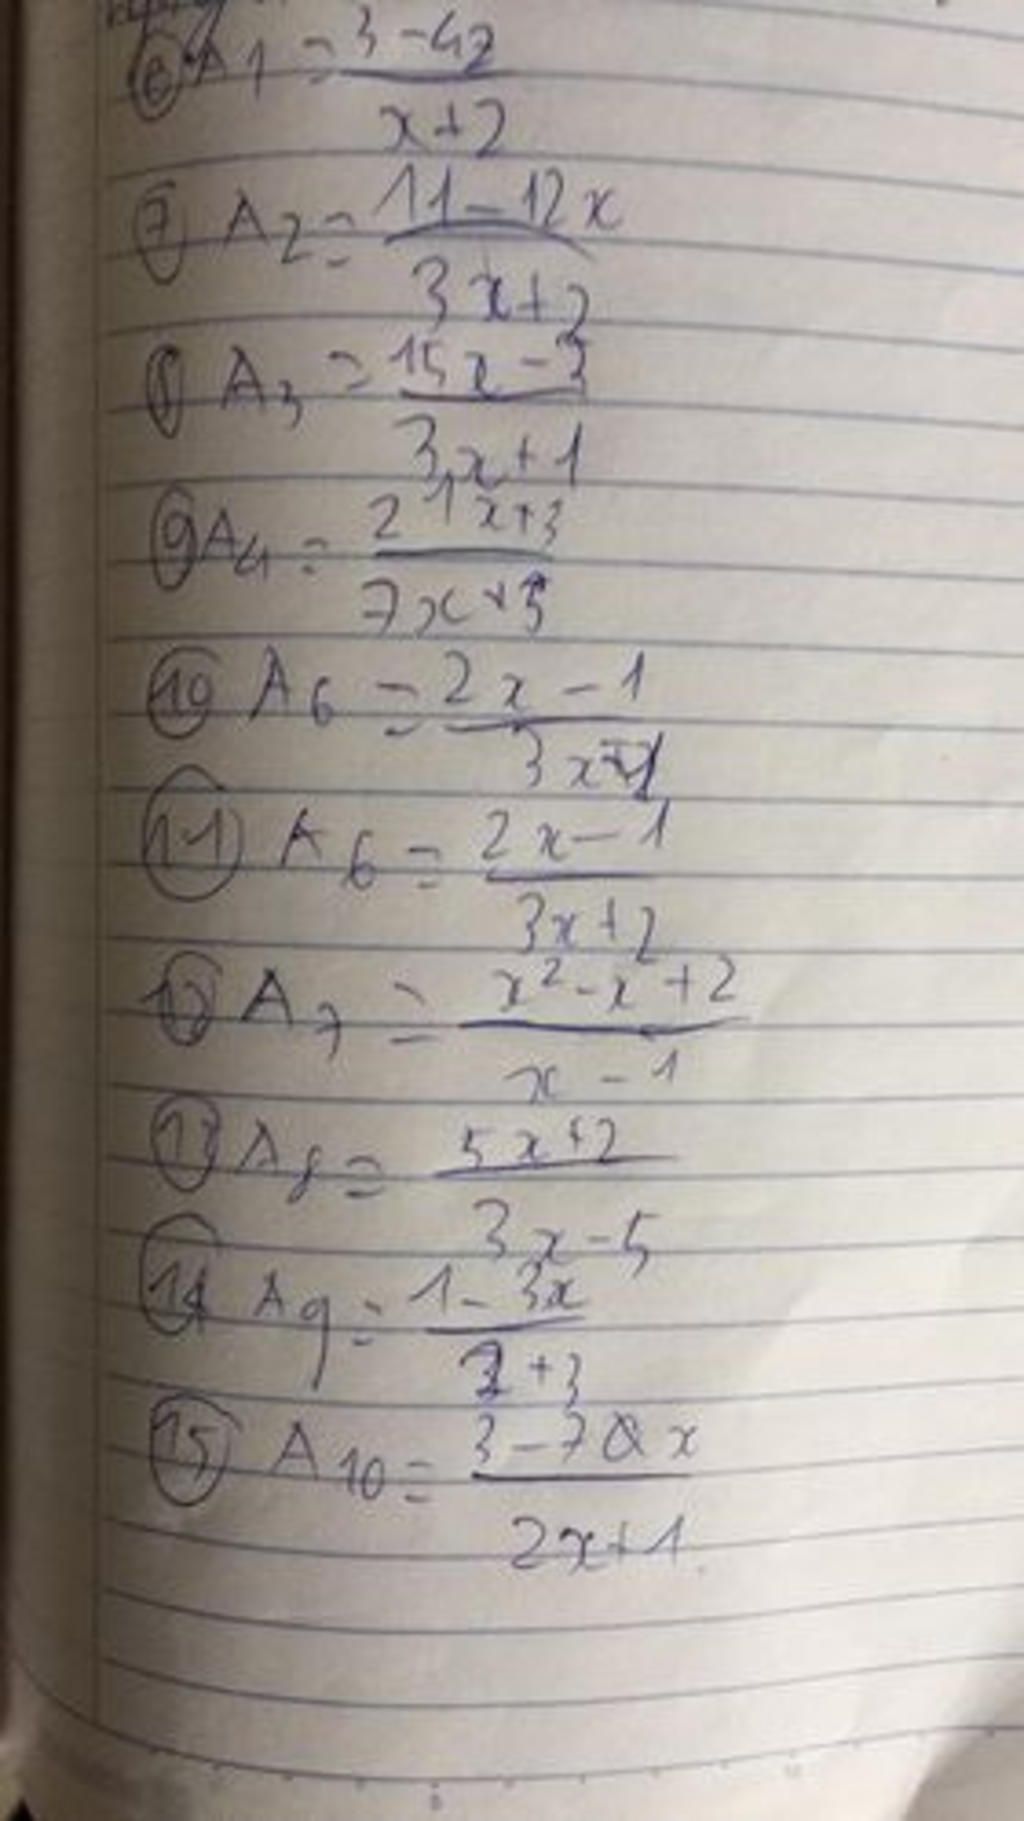 ⑥ A1 = 3-42
x+2
⑦ A2 = 11-12x
3x+2
⑧ A3 = 15x-3
3x+1
⑨ A4 = 21x+3
7x+5
⑩ A6 = 2x-1
3x
⑪ A6 = 2x-1
3x+2
⑫ A7 = x²-x+2
x-1
⑬ A8 = 5x+2
3x-5
⑭ A9 = 1-3x
+3
⑮ A10 = 3-7 x
2x+1